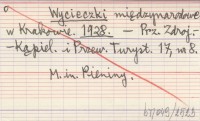 Wycieczki międzynarodowe
w Krakowie. 1928. – Prz. Zdroj.-
-Kąpiel. i Przew. Turyst. 17, nr 8.
M. in. Pieniny.